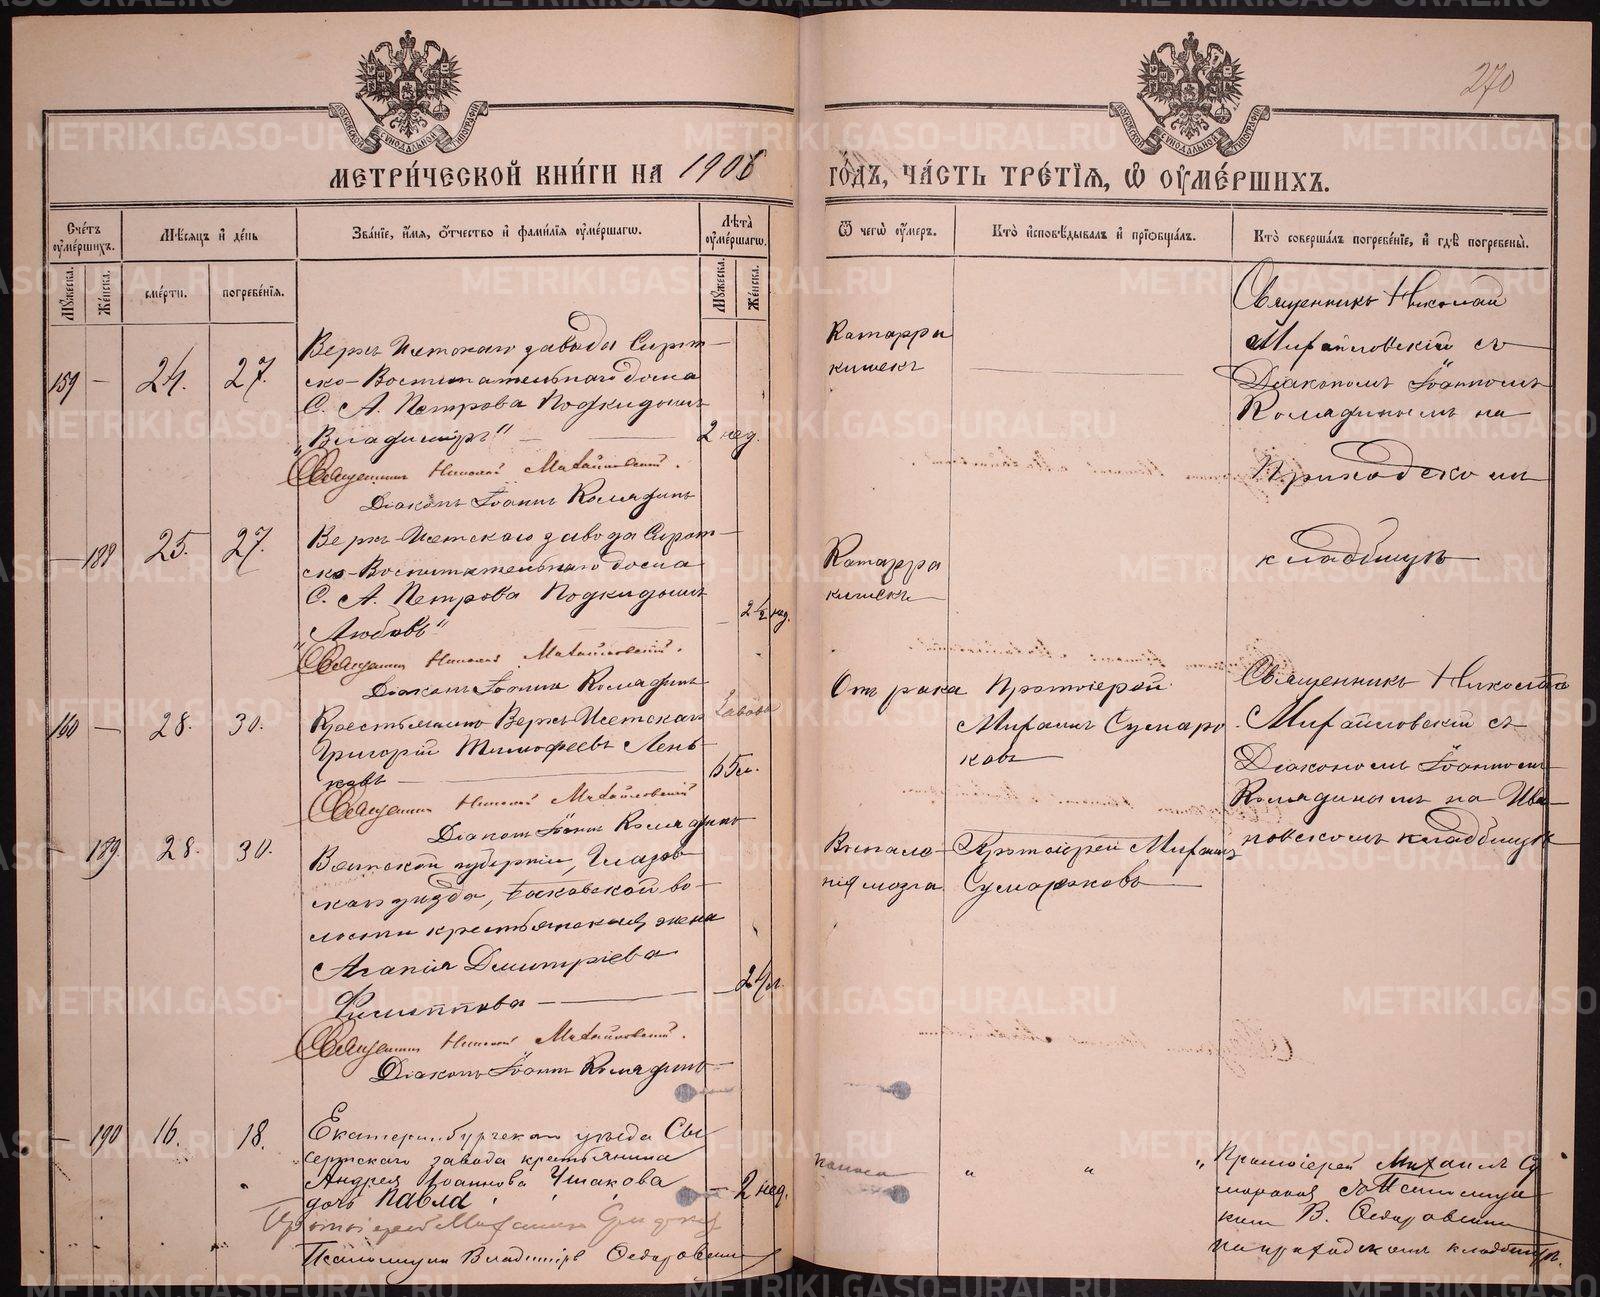 270
МЕТРИ́ЧЕСКОЙ КНИ́ГИ НА 1906
ГО́ДЪ, ЧА́СТЬ ТРЕ́ТІЯ, Ѿ ОУМЕ́РШИХЪ.
Сче́тъ оуме́ршихъ.
Му́жеска.
Же́нска.
Мѣ́сяцъ и де́нь
сме́рти.
погребе́нія.
Зва́ніе, и́мя, о́тчество и фами́лія оуме́ршагѡ.
Лѣта̀ оуме́ршагѡ.
Му́жеска.
Же́нска.
Ѿ чегѡ̀ оу́меръ.
Кто̀ исповѣ́дывалъ и пріѡбща́лъ.
Кто̀ соверша́лъ погребе́ніе, и гдѣ̀ погребены̀.
159 — 24. 27.
Верхъ-Исетскаго завода Сирот-
ско-Воспитательнаго дома
С. А. Петрова Подкидышъ
„Владиміръ" — 2 нед.
Священникъ Николай Михайловскій.
Діаконъ Іоаннъ Колядинъ
Катарръ
кишекъ
Священникъ Николай
Михайловскій съ
Діакономъ Іоанномъ
Колядинымъ на
Приходскомъ
кладбищѣ
— 188 25. 27.
Верхъ-Исетскаго завода Сирот-
ско-Воспитательнаго дома
С. А. Петрова Подкидышъ
„Любовь" 2½ нед.
Священникъ Николай Михайловскій.
Діаконъ Іоаннъ Колядинъ
Катарра
кишекъ
160 — 28. 30.
Крестьянинъ Верхъ-Исетскаго завода
Григорій Тимофеевъ Лень-
ковъ — 65 л.
Священникъ Николай Михайловскій
Діаконъ Іоаннъ Колядинъ
Отъ рака
Протоіерей
Михаилъ Сумаро-
ковъ
Священникъ Николай
Михайловскій съ
Діакономъ Іоанномъ
Колядинымъ на Ива-
новскомъ кладбищѣ
— 189. 28. 30.
Вятской губерніи, Глазов-
скаго уѣзда,
волости крестьянская жена
Агапія Дмитріева
Филиппова — 24 л.
Священникъ Николай Михайловскій.
Діаконъ Іоаннъ Колядинъ
Воспале-
нія мозга
Протоіерей Михаилъ
Сумароковъ
— 190 16. 18.
Екатеринбургскаго уѣзда Сы-
сертскаго завода крестьянина
Андрея Іоаннова Ушакова
дочь Павла — 2 нед.
Протоіерей Михаилъ
Псаломщикъ Владиміръ Ѳедоровскій
поноса
" " "
Протоіерей Михаилъ Су-
мароковъ съ Псаломщи-
комъ В. Ѳедоровскимъ
на приходскомъ кладбищѣ.
METRIKI.GASO-URAL.RU